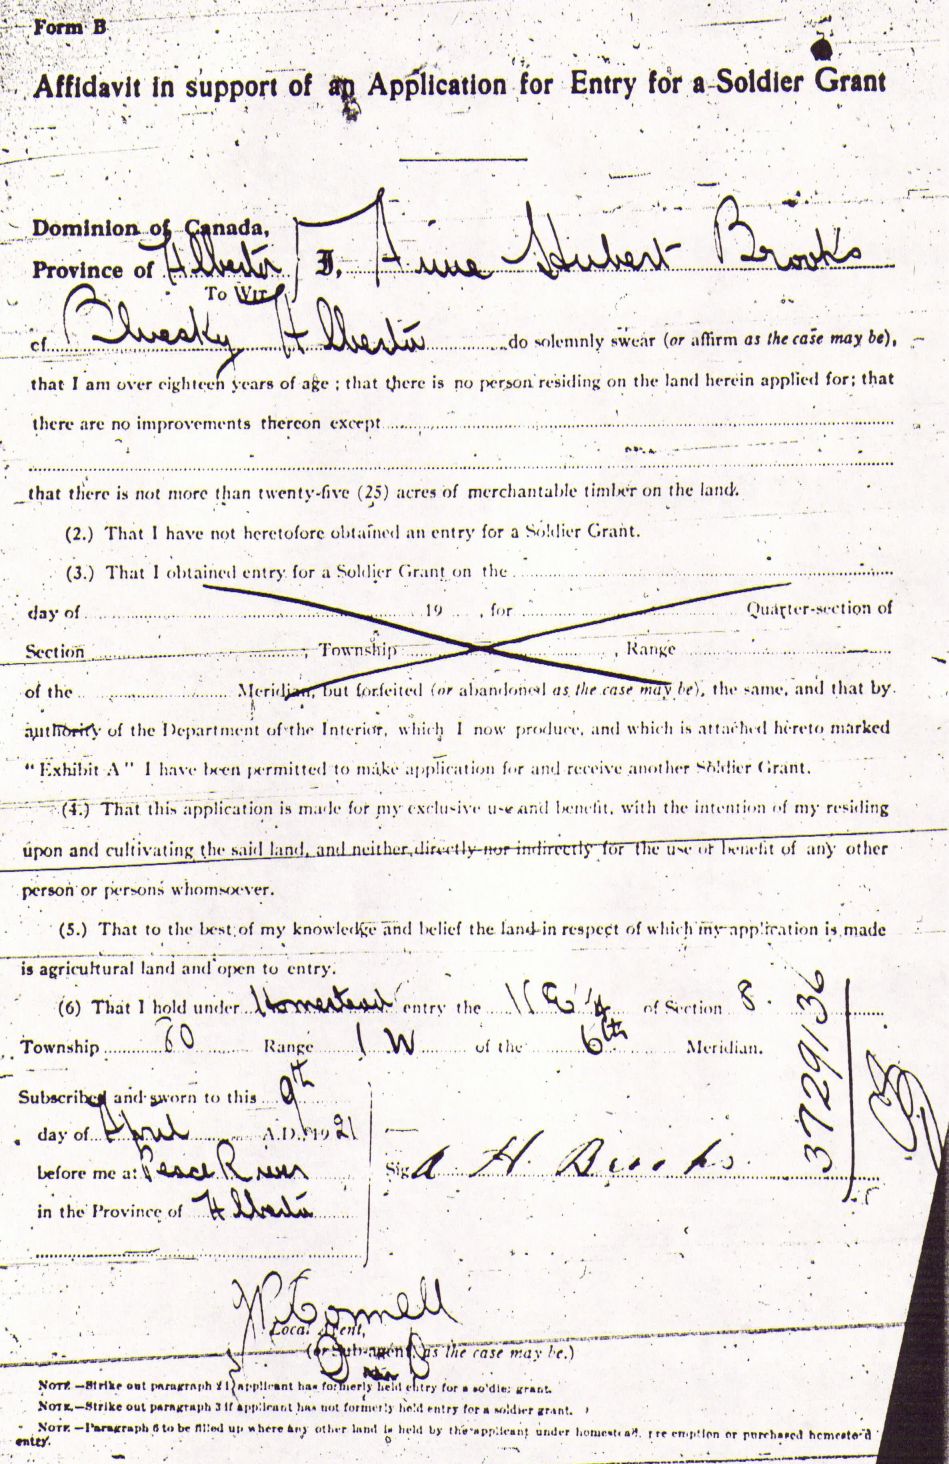 Form B
Affidavit in support of an Application for Entry for a Soldier Grant
Dominion of Canada,
Province of Alberta I, Aime Hubert Brooks
To Wit
of Bluesky Alberta do solemnly swear (or affirm as the case may be),
that I am over eighteen years of age ; that there is no person residing on the land herein applied for; that
there are no improvements thereon except
that there is not more than twenty-five (25) acres of merchantable timber on the land.
(2.) That I have not heretofore obtained an entry for a Soldier Grant.
(3.) That I obtained entry for a Soldier Grant on the
day of 19 , for Quarter-section of
Section , Township , Range
of the Meridian, but forfeited (or abandoned as the case may be), the same, and that by
authority of the Department of the Interior, which I now produce, and which is attached hereto marked
"Exhibit A" I have been permitted to make application for and receive another Soldier Grant.
(4.) That this application is made for my exclusive use and benefit, with the intention of my residing
upon and cultivating the said land, and neither directly nor indirectly for the use or benefit of any other
person or persons whomsoever.
(5.) That to the best of my knowledge and belief the land in respect of which my application is made
is agricultural land and open to entry.
(6) That I hold under Homestead entry the N E 1/4 of Section 8
Township 80 Range 1 W of the 6th Meridian.
3729136
Subscribed and sworn to this 9th
day of April A.D. 1921
before me at Peace River
Sig A H Brooks
in the Province of Alberta
Local Agent,
(or Sub-agent, as the case may be.)
NOTE.—Strike out paragraph 2 if applicant has formerly held entry for a soldier grant.
NOTE.—Strike out paragraph 3 if applicant has not formerly held entry for a soldier grant.
NOTE.—Paragraph 6 to be filled up where any other land is held by the applicant under homestead, pre emption or purchased homestead
entry.